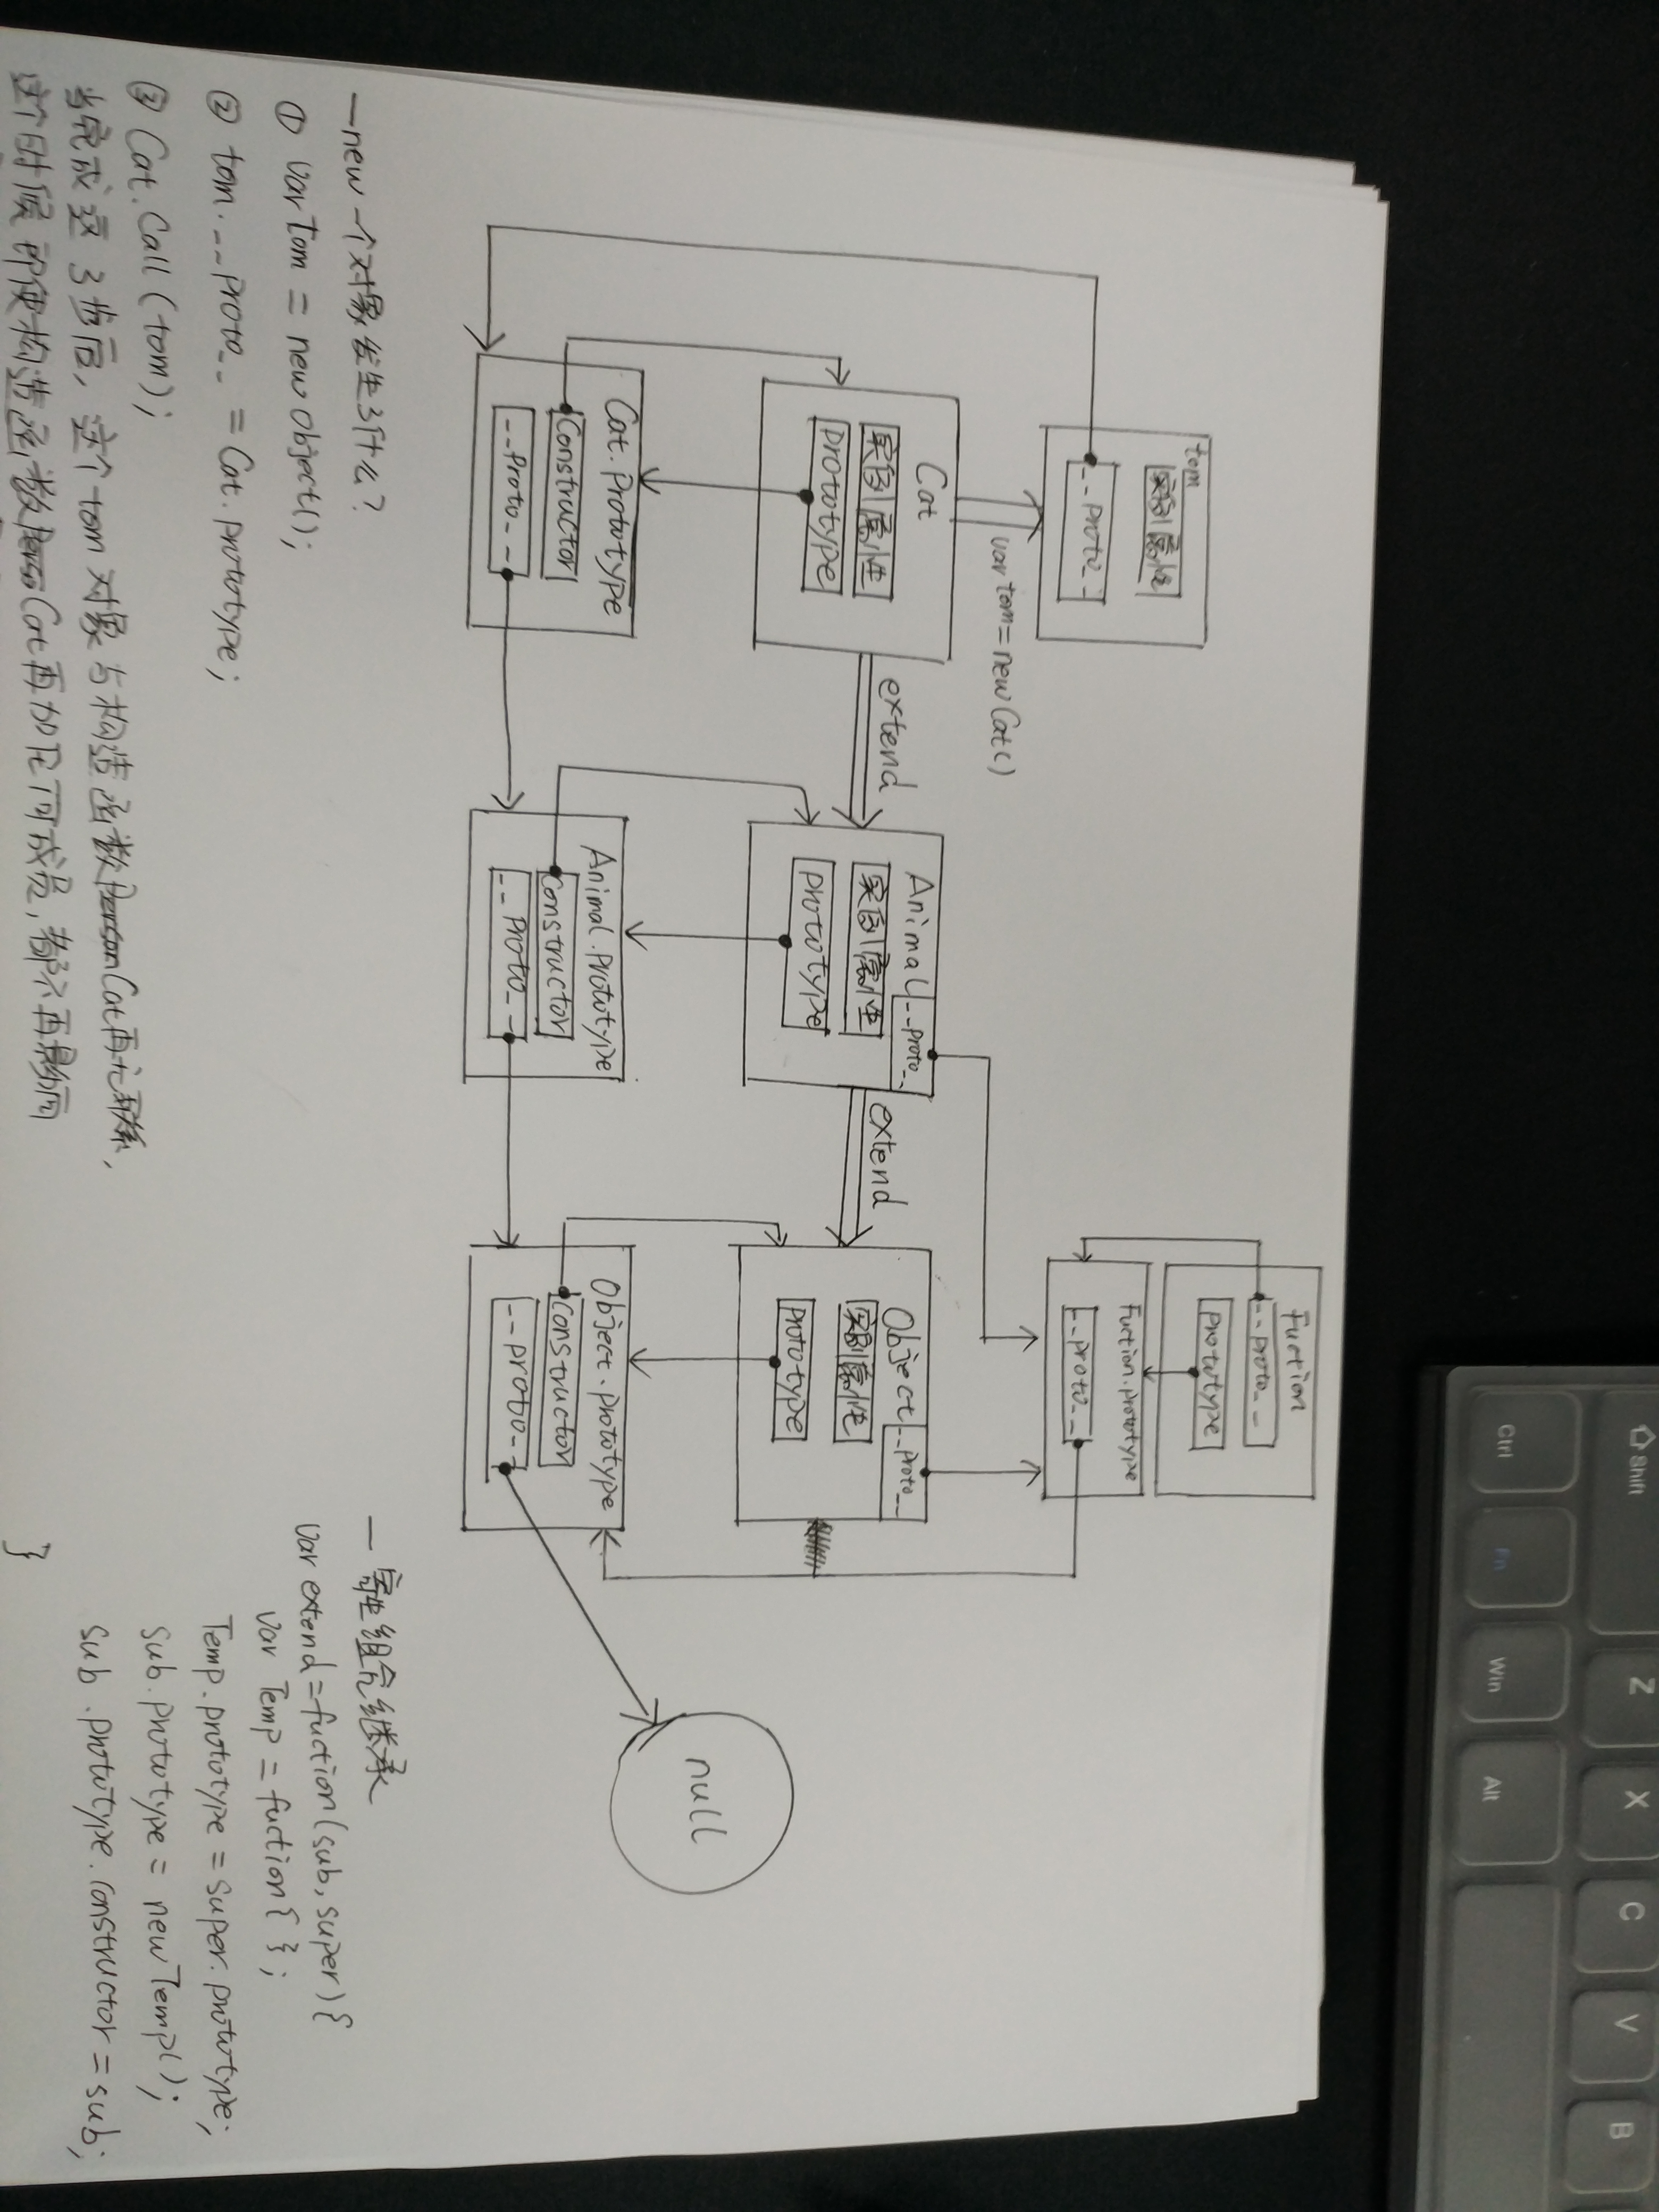 Shift Z X C V B
Ctrl Fn Win Alt
Fuction
__proto__
prototype
Fuction.prototype
__proto__
tom
实例属性
__proto__
var tom=new Cat()
Cat
实例属性
prototype
extend
Animal __proto__
实例属性
prototype
extend
Object __proto__
实例属性
prototype
null
Cat.prototype
Constructor
__proto__
Animal.prototype
Constructor
__proto__
Object.prototype
Constructor
__proto__
—new 一个对象发生了什么?
① var Tom = new Object();
② tom.__proto__ = Cat.prototype;
③ Cat.Call(tom);
当完成这3步后, 这个tom 对象与构造函数Person Cat再无联系,
这个时候即使构造函数Person Cat再加任何成员, 都不再影响
一 寄生组合继承
var extend=fuction(sub, super){
var Temp = fuction{ };
Temp.prototype = super.prototype;
sub.prototype = new Temp();
sub.prototype.constructor = sub;
}